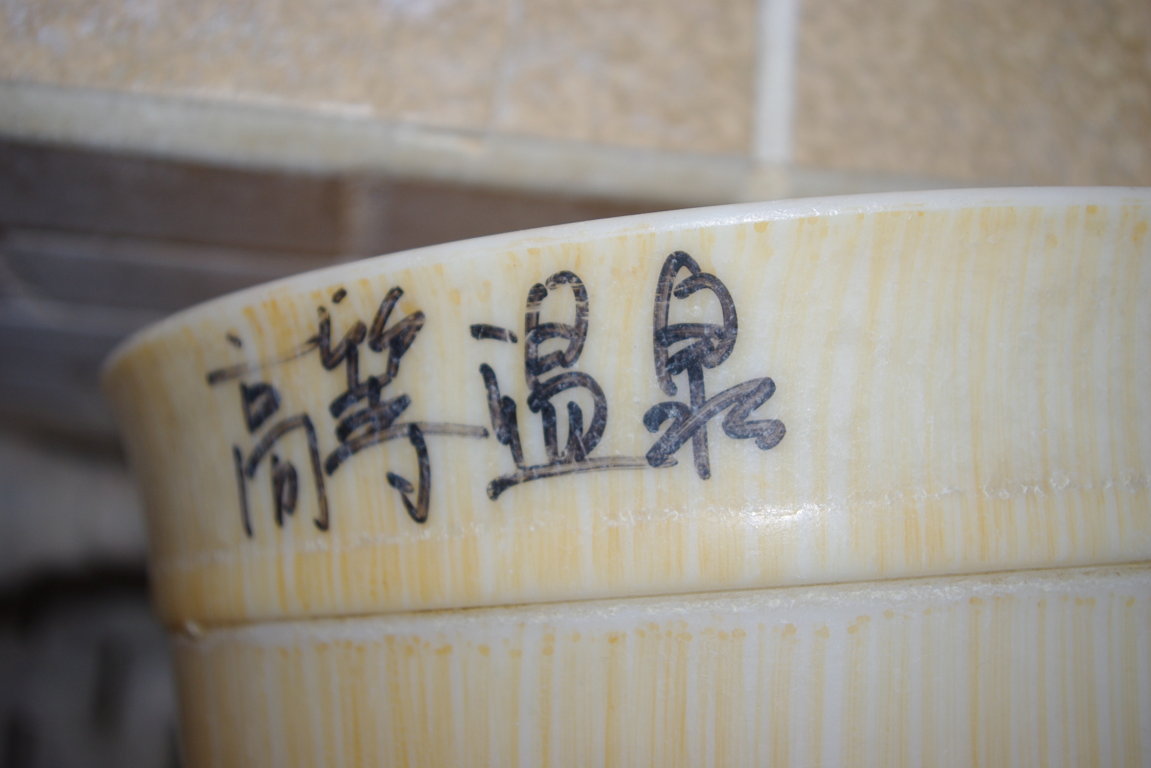 高等温泉